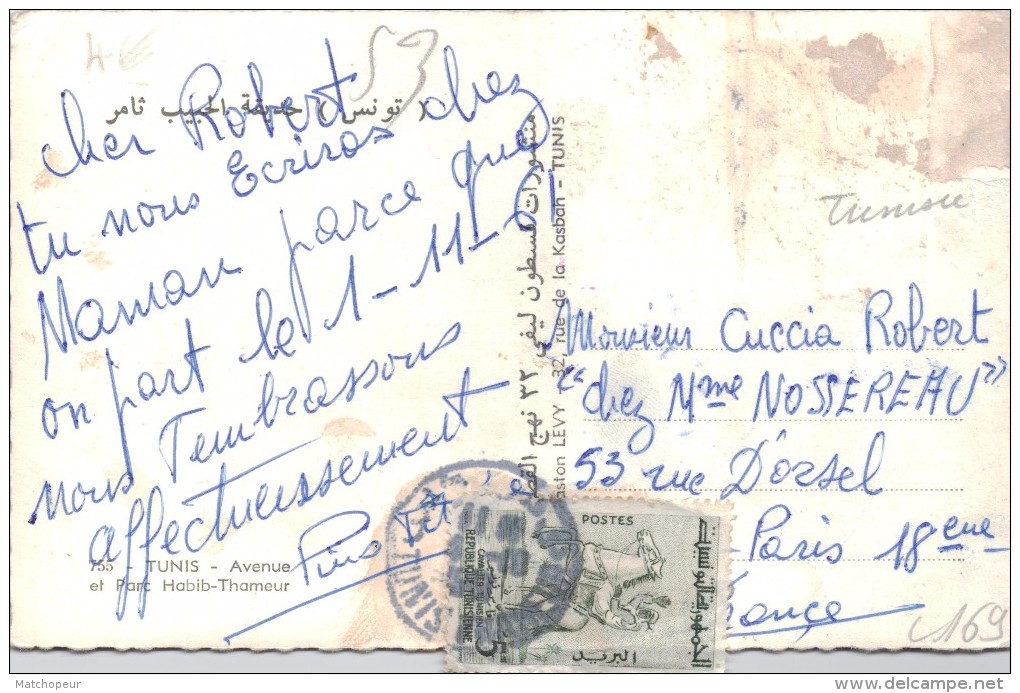 4 €
53
( تونس ) حديقة الحبيب ثامر
Cher Robert
tu nous Ecriras chez
Maman parce que
on part le 1-11-6
nous Tembrassons
affectueusement
755 - TUNIS - Avenue
et Parc Habib-Thameur
منشورات قسطون ليفي ٣٢ نهج القص
aston LEVY - 32, rue de la Kasbah - TUNIS
Tunisie
Monsieur Cuccia Robert
"chez Mme NOSSEREAU"
53 rue D'orsel
Paris 18eme
rance
169
POSTES
الجمهورية التونسية
البريد
CAVALIER TUNISIEN
REPUBLIQUE TUNISIENNE
5
TUNIS
Matchopeur
delcampe.net